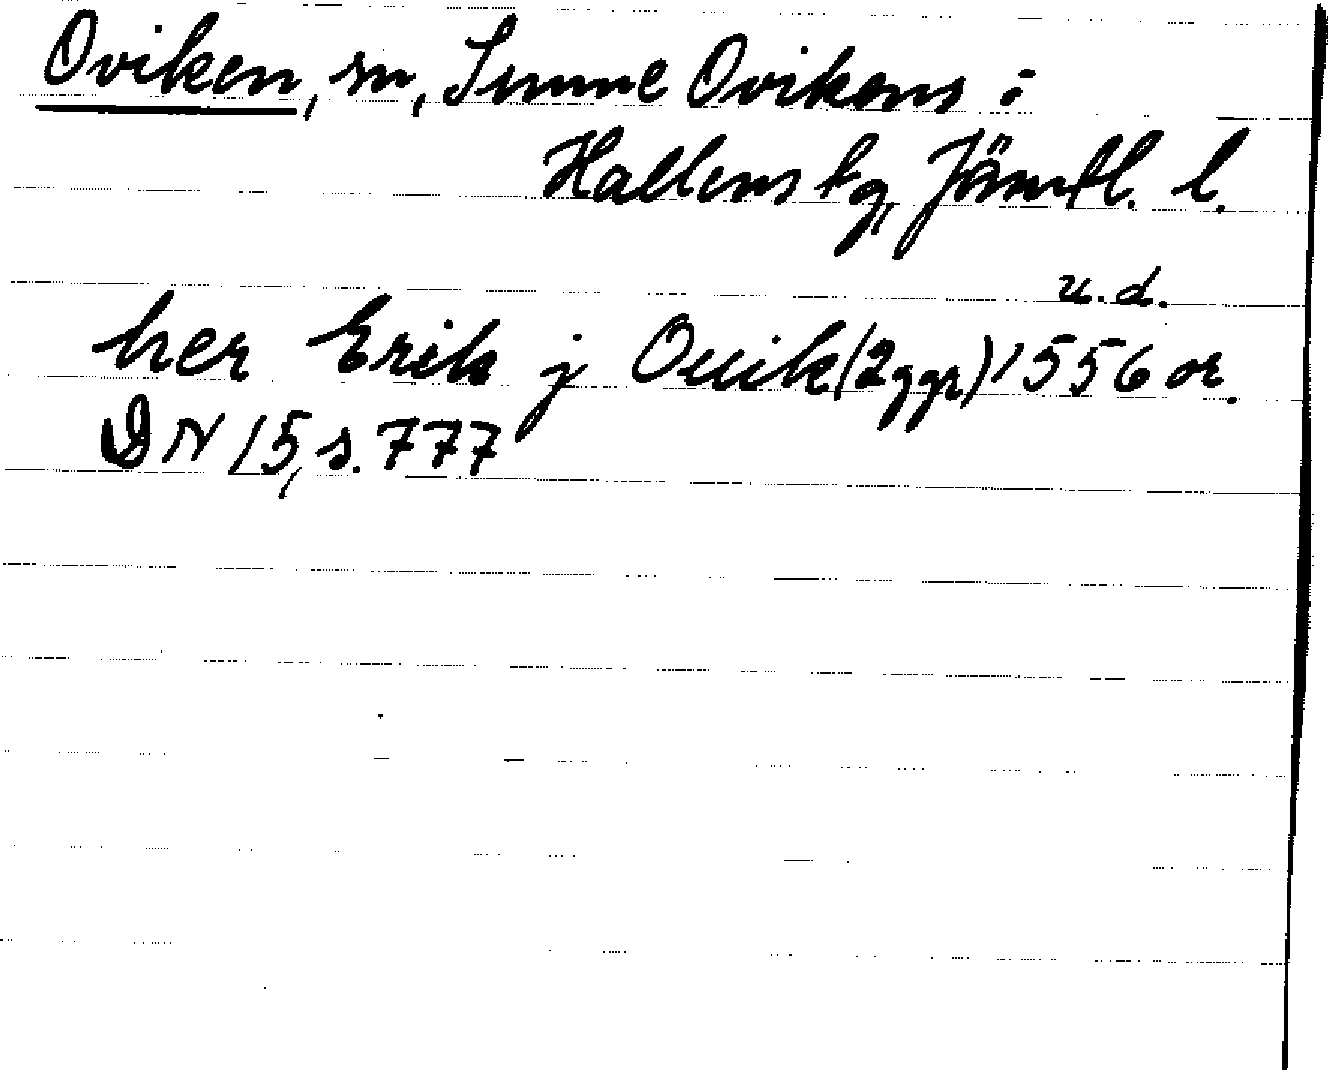 Oviken, sn, Sunne Ovikens o
Hallens tg, Jämtl. l.
u.d.
her Erik j Ouik (2 ggr) 1556 or.
DN 15, s. 777